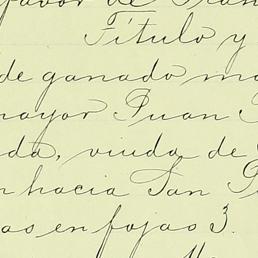 favor de Fran
Título y
de ganado ma
mayor Juan
da, viuda de
hacia San
as en fojas 3.